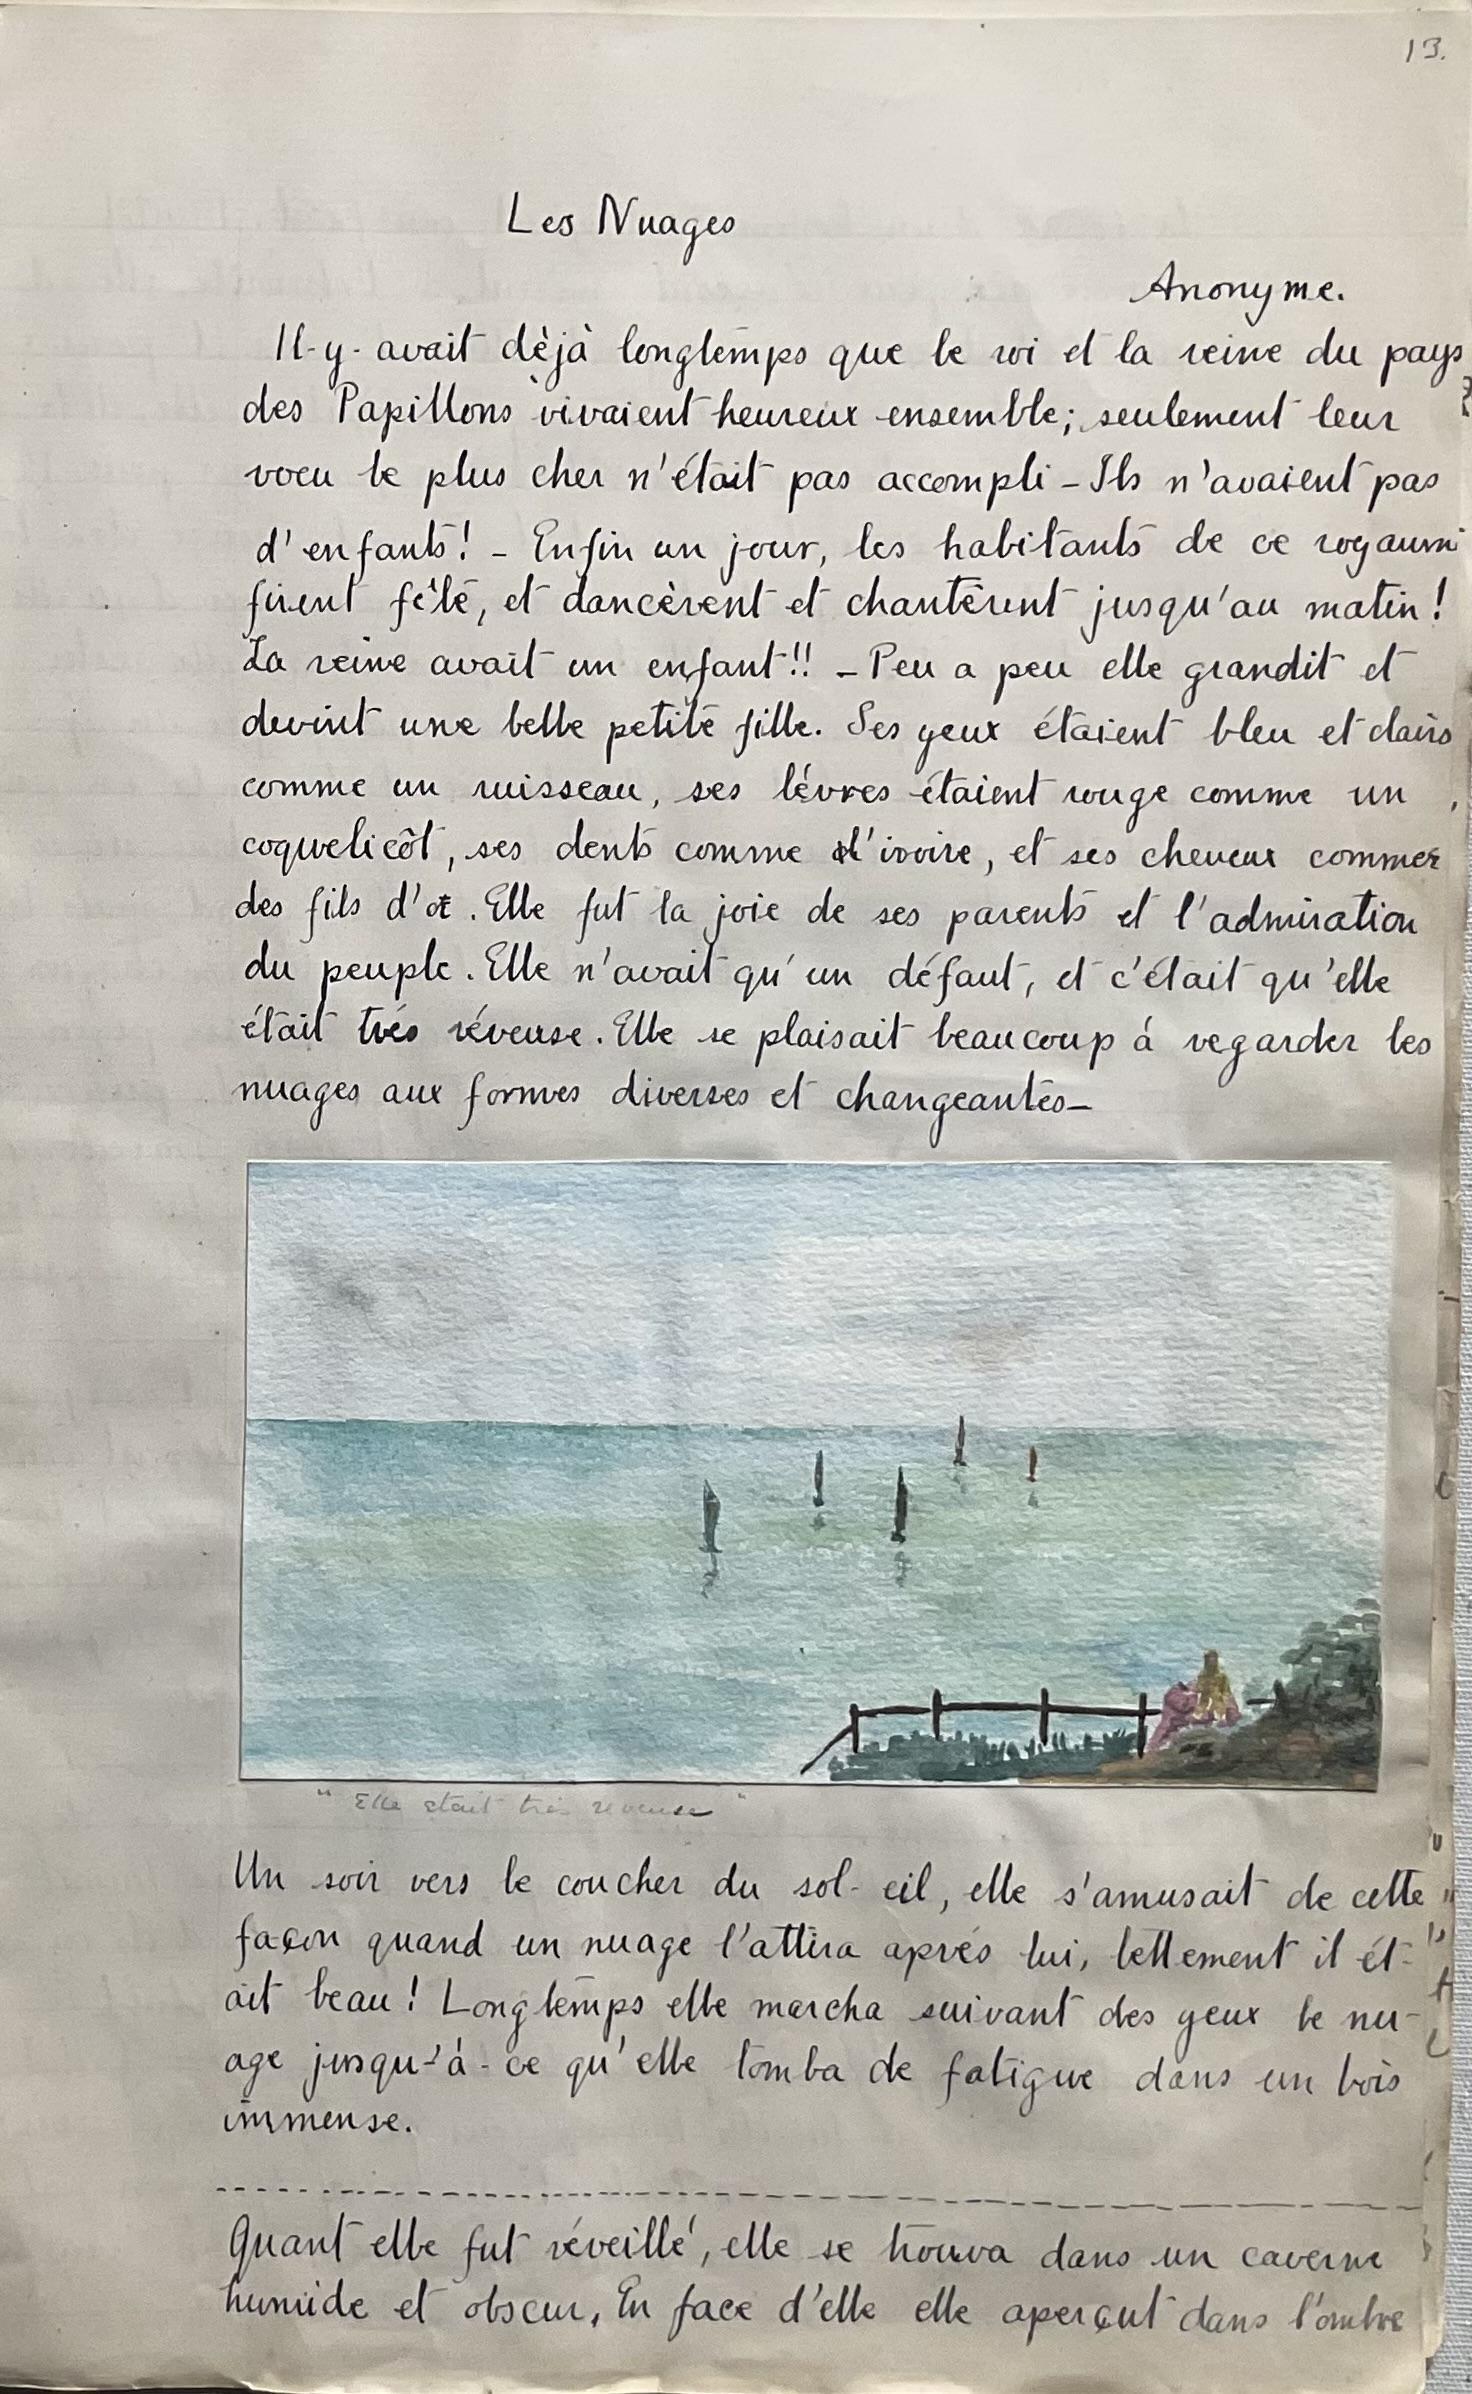 13.
Les Nuages
Anonyme.
Il-y-avait dèjà longtemps que le roi et la reine du pays
des Papillons vivaient heureux ensemble; seulement leur
voeu le plus cher n'était pas accompli - Ils n'avaient pas
d'enfants! - Enfin un jour, les habitants de ce royaume
firent fête, et dancèrent et chantèrent jusqu'au matin!
La reine avait un enfant!! - Peu a peu elle grandit et
devint une belle petite fille. Ses yeux étaient bleu et clairs
comme un ruisseau, ses lévres étaient rouge comme un
coquelicôt, ses dents comme d'ivoire, et ses cheveux commer
des fils d'or. Elle fut la joie de ses parents et l'admiration
du peuple. Elle n'avait qu'un défaut, et c'était qu'elle
était trés réveuse. Elle se plaisait beaucoup á regarder les
nuages aux formes diverses et changeantes-
"Elle etait très reveuse"
Un soir vers le coucher du sol-eil, elle s'amusait de cette
façon quand un nuage l'attira aprés lui, tellement il ét-
ait beau! Longtemps elle marcha suivant des yeux le nu-
age jusqu-'á-ce qu'elle tomba de fatigue dans un bois
immense.
Quant elle fut réveillé, elle se trouva dans un caverne
humide et obscur, En face d'elle elle aperçut dans l'ombre